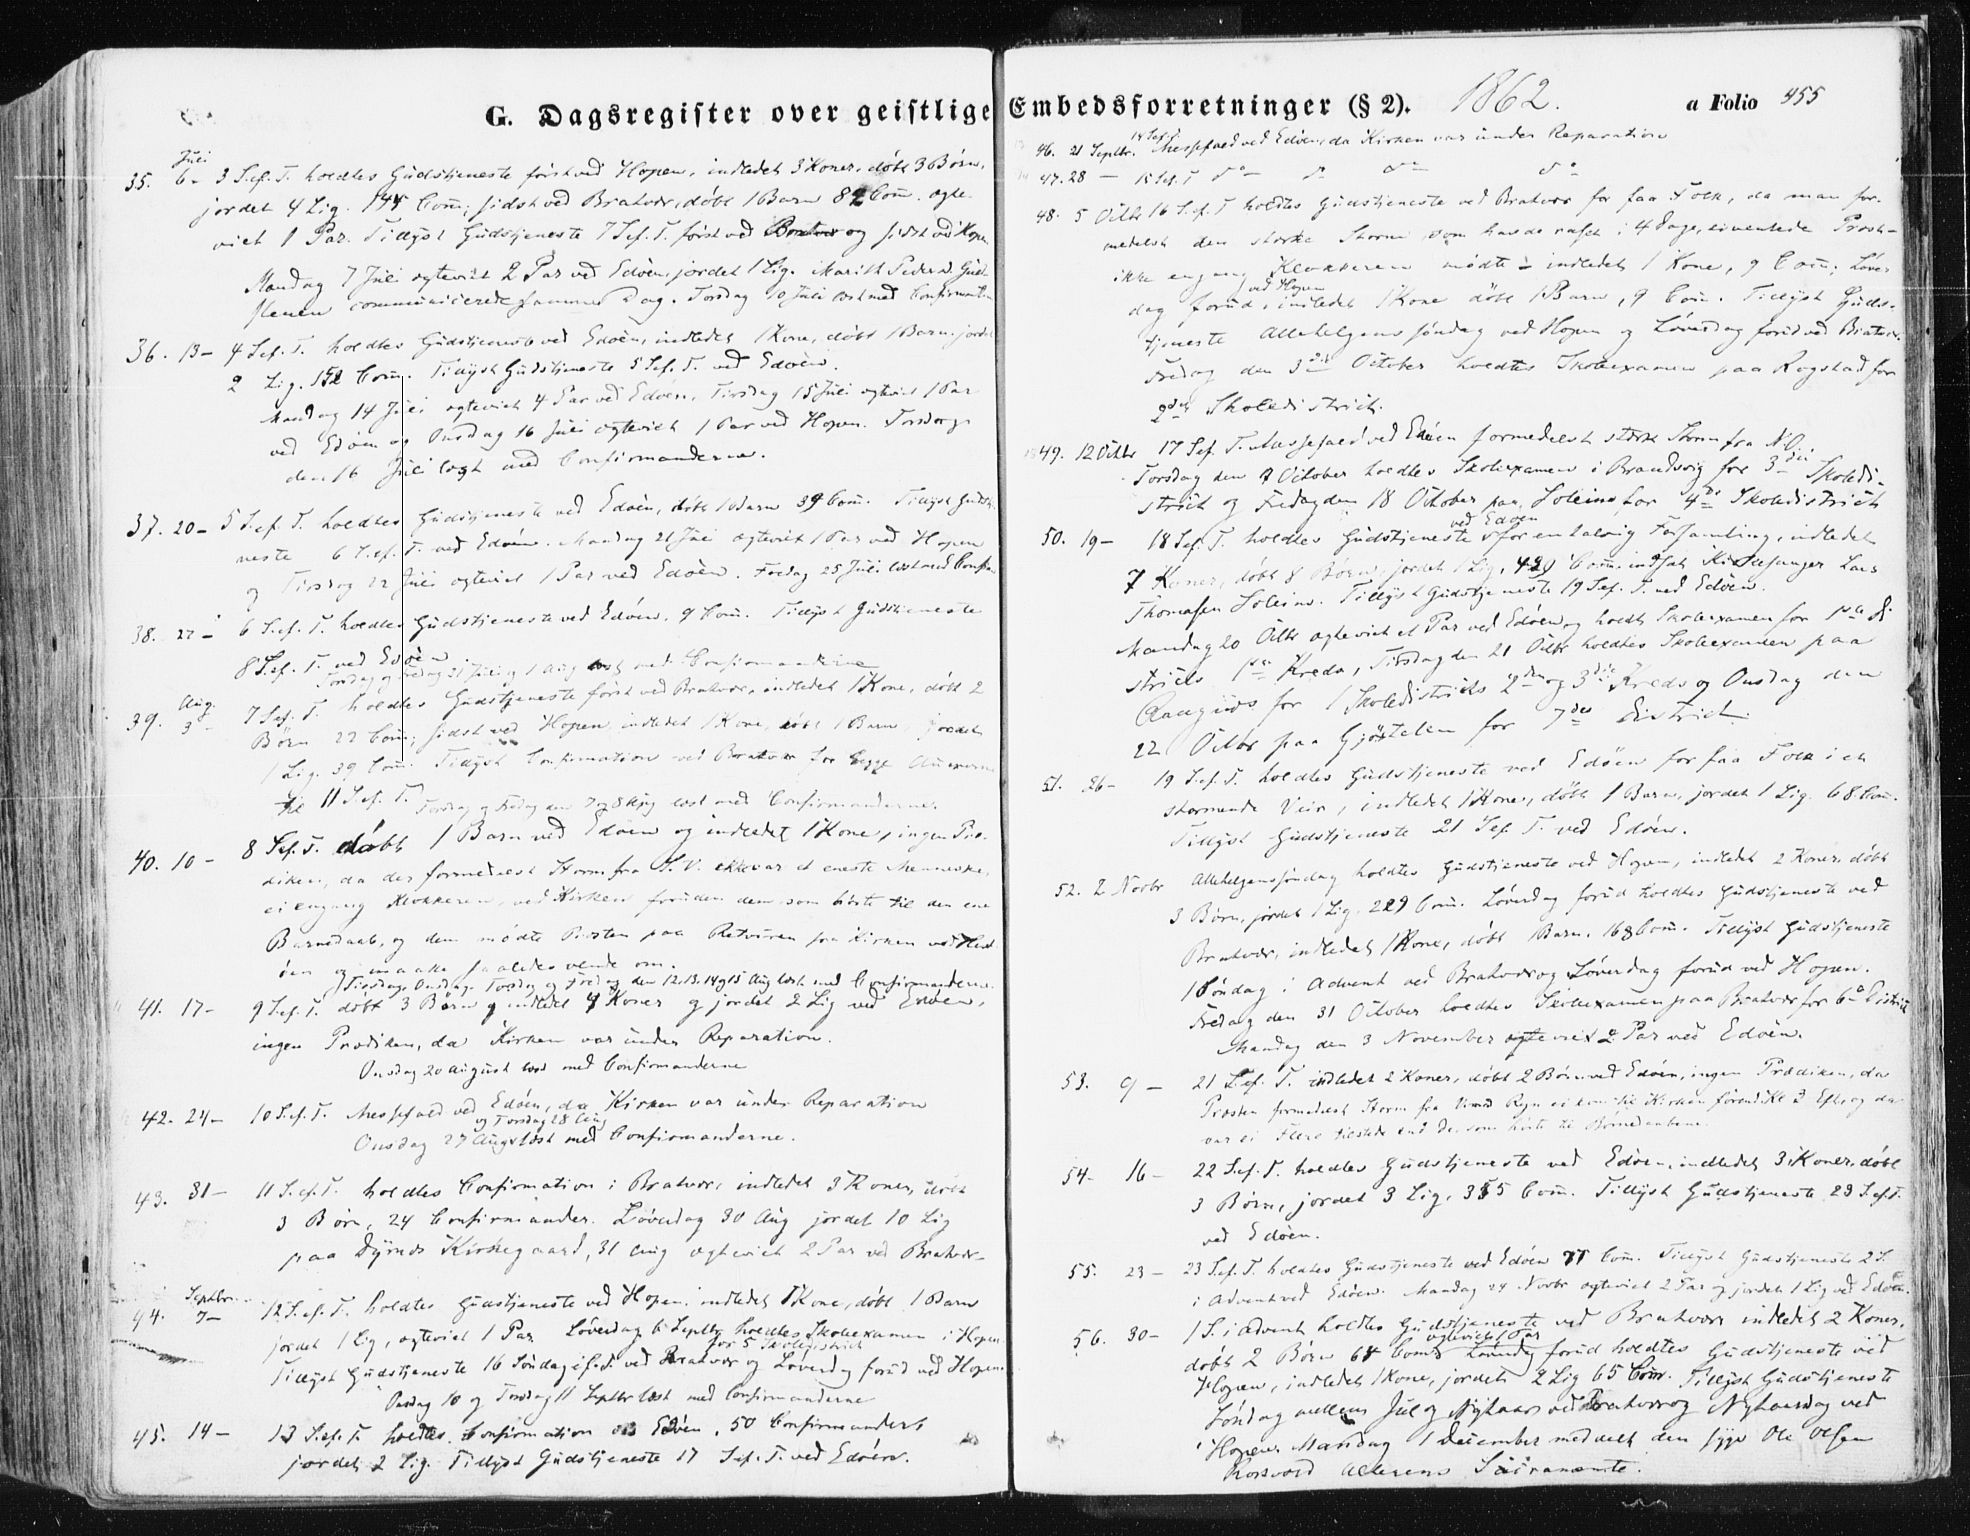 G. Dagsregister over geistlige Embedsforretninger (§ 2). 1862. a Folio 455
Juli
35. 6 - 3 S.ef.T. holdtes Gudstjeneste først ved Hopen, indledet 3 Koner, døbt 3 Børn,
jordet 4 Lig. 144 Com; sidst ved Bratvær, døbt 1 Barn 82 Com. ægte-
viet 1 Par. Tillyst Gudstjeneste 7 S.ef.T. først ved Bratvær og sidst ved Hopen
Mandag 7 Juli ægteviet 2 Par ved Edøen, jordet 1 Lig. Marith Pedersd.
communicerede samme Dag. Torsdag 10 Juli læst med Confirmanderne
36. 13 - 4 S.ef.T. holdtes Gudstjeneste ved Edøen, indledet 1 Kone, døbt 1 Barn, jordet
2 Lig. 152 Com. Tillyst Gudstjeneste 5 S.ef.T. ved Edøen.
Mandag 14 Juli ægteviet 4 Par ved Edøen, Tirsdag 15 Juli ægteviet 1 Par
ved Edøen og Onsdag 16 Juli ægteviet 1 Par ved Hopen. Torsdag
den 16 Juli læst med Confirmanderne.
37. 20 - 5 S.ef.T. holdtes Gudstjeneste ved Edøen, døbt 1 Barn 39 Com. Tillyst Gudstje-
neste 6 S.ef.T. ved Edøen. Mandag 21 Juli ægteviet 1 Par ved Hopen
og Tirsdag 22 Juli ægteviet 1 Par ved Edøen. Fredag 25 Juli læst med Confirm
38. 27 - 6 S.ef.T. holdtes Gudstjeneste ved Edøen. 9 Com. Tillyst Gudstjeneste
8 S.ef.T. ved Edøen.
Torsdag og Fredag 31 Juli og 1 Aug læst med Confirmanderne
Aug.
39. 3 - 7 S.ef.T. holdtes Gudstjeneste først ved Bratvær, indledet 1 Kone, døbt 2
Børn 22 Com; sidst ved Hopen, indledet 1 Kone, døbt 1 Barn, jordet
1 Lig. 39 Com. Tillyst Confirmation ved Bratvær for begge Annexerne
til 11 S.ef.T. Torsdag og Fredag den 7 og 8 Aug læst med Confirmanderne.
40. 10 - 8 S.ef.T. døbt 1 Barn ved Edøen og indledet 1 Kone, ingen Præ-
diken, da der formedelst Storm fra S.V. ikke var et eneste Menneske,
ei engang Klokkeren, ved Kirken foruden dem som hørte til den ene
Barnedaab, og dem mødte Præsten paa Retouren fra Kirken ved
øen og maatte saaledes vende om.
Tirsdag, Onsdag, Torsdag og Fredag den 12, 13, 14 og 15 Aug læst med Confirmanderne.
41. 17 - 9 S.ef.T. døbt 3 Børn og indledet 4 Koner og jordet 2 Lig ved Edøen,
ingen Prædiken, da Kirken var under Reparation.
Onsdag 20 August læst med Confirmanderne
42. 24 - 10 S.ef.T. Messefald ved Edøen, da Kirken var under Reparation
og Torsdag 28 Aug
Onsdag 27 Aug læst med Confirmanderne.
43. 31 - 11 S.ef.T. holdtes Confirmation i Bratvær, indledet 3 Koner, døbt
3 Børn, 24 Confirmander. Løverdag 30 Aug jordet 10 Lig
paa Dyrnæs Kirkegaard, 31 Aug ægteviet 2 Par ved Bratvær
Septbr
44. 7 - 12 S.ef.T. holdtes Gudstjeneste ved Hopen, indledet 1 Kone, døbt 1 Barn
jordet 1 Lig, ægteviet 1 Par Løverdag 6 Septbr holdtes Skoleexamen i Hopen
for 5 Skoledistrict
Tillyst Gudstjeneste 16 Søndag ef.T. ved Bratvær og Løverdag forud ved Hopen.
Onsdag 10 og Torsdag 11 Septbr læst med Confirmanderne
45. 14 - 13 S.ef.T. holdtes Confirmation ved Edøen, 50 Confirmander
jordet 2 Lig. Tillyst Gudstjeneste 17 S.ef.T. ved Edøen.
46. 21 Septbr. 14 S.ef.T. Messefald ved Edøen, da Kirken var under Reparation
47. 28 - 15 S.ef.T do do do do
48. 5 Octbr 16 S.ef.T holdtes Gudstjeneste ved Bratvær for faa Folk, da man for-
medelst den stærke Storm som havde raset i 4 Dage, ei ventede Præst-
ikke engang Klokkeren mødte - indledet 1 Kone, 9 Com. Løver-
dag forud, ved Hopen indledet 1 Kone døbt 1 Barn, 9 Com. Tillyst Guds-
tjeneste Allehelgens søndag ved Hopen og Løverdag forud ved Bratvær.
Fredag den 3die October holdtes Skoleexamen paa Rogstad for
2det Skoledistrict.
49. 12 Octbr 17 S.ef.T. Messefald ved Edøen formedelst stærk Storm fra N.O.
Torsdag den 9 October holdtes Skoleexamen i Brandsvig for 3die Skoledi-
strict og Fredag den 18 October paa Soleims for 4de Skoledistrict
50. 19 - 18 S.ef.T. holdtes Gudstjeneste ved Edøen for en talrig Forsamling, indledet
7 Koner, døbt 8 Børn, jordet 1 Lig, 429 Com. indsat Kirkesanger Lars
Thomasen Soleims. Tillyst Gudstjeneste 19 S.ef.T. ved Edøen.
Mandag 20 Octbr ægteviet et Par ved Edøen og holdt Skoleexamen for 1ste Di-
stricts 1ste Kreds, Tirsdag den 21 Octbr holdtes Skoleexamen paa
for 1 Skoledistricts 2den og 3die Kreds og Onsdag den
22 Octbr paa Gjøstelen for 7de District.
51. 26 - 19 S.ef.T. holdtes Gudstjeneste ved Edøen for faa Folk i et
stormende Veir, indledet 1 Kone, døbt 1 Barn, jordet 1 Lig. 68 Com.
Tillyst Gudstjeneste 21 S.ef.T. ved Edøen.
52. 2 Novbr Allehelgenssøndag holdtes Gudstjeneste ved Hopen, indledet 2 Koner, døbt
3 Børn, jordet 1 Lig. 229 Com. Løverdag forud holdtes Gudstjeneste ved
Bratvær, indledet 1 Kone, døbt 1 Barn. 168 Com. Tillyst Gudstjeneste
1 Søndag i Advent ved Bratvær og Løverdag forud ved Hopen.
Fredag den 31 October holdtes Skoleexamen paa Bratvær for 6te District
Mandag den 3 November ægteviet 2 Par ved Edøen.
53. 9 - 21 S.ef.T. indledet 2 Koner, døbt 2 Børn ved Edøen, ingen Prædiken, da
Præsten formedelst Storm fra ei kom til Kirken førend Kl 3 Eft. og da
var ei Flere tilstede end de som hørte til Barnedaabene.
54. 16 - 22 S.ef.T. holdtes Gudstjeneste ved Edøen, indledet 3 Koner, døbt
3 Børn, jordet 3 Lig, 355 Com. Tillyst Gudstjeneste 23 S.ef.T.
ved Edøen.
55. 23 - 23 S.ef.T. holdtes Gudstjeneste ved Edøen 77 Com. Tillyst Gudstjeneste 2 S.
i Advent ved Edøen. Mandag 24 Novbr ægteviet 2 Par og jordet 1 Lig ved Edøen.
56. 30 - 1 S. i Advent holdtes Gudstjeneste ved Bratvær indledet 2 Koner,
døbt 2 Børn 68 Com; ægteviet 1 Par Løverdag forud holdtes Gudstjeneste ved
Hopen, indledet 1 Kone, jordet 2 Lig 65 Com. Tillyst Gudstjeneste
Søndag mellem Jul og Nytaar ved Bratvær og Nytaarsdag ved
Hopen. Mandag 1 December meddelt den syge Ole Olsen
Korsvold Alterens Sacramente.